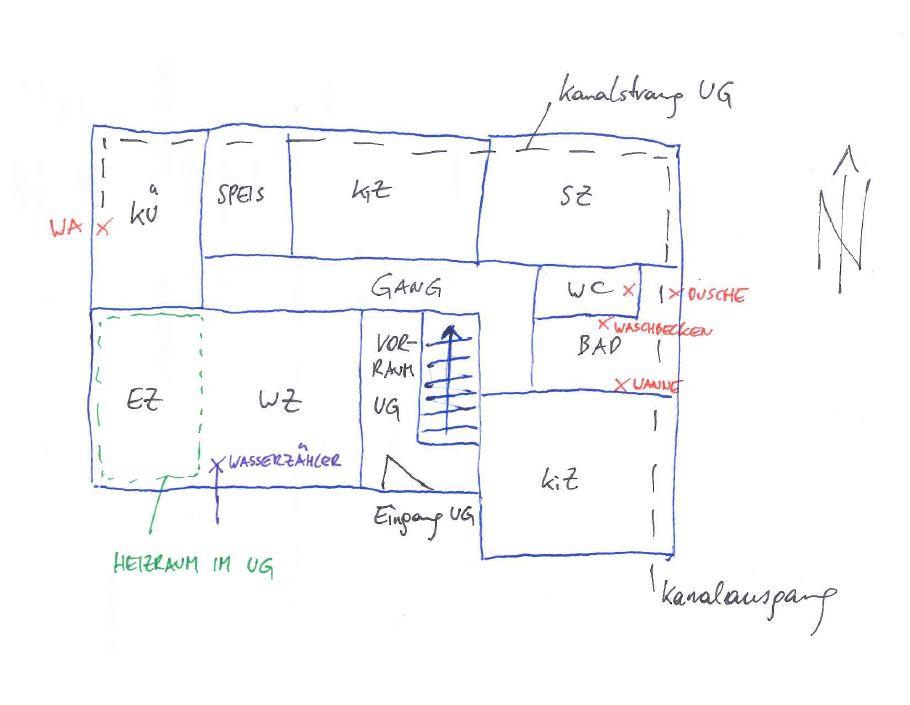 Kanalstrang UG
KÜ
SPEIS
KiZ
SZ
WA
N
GANG
WC
DUSCHE
WASCHBECKEN
BAD
WANNE
VOR-
RAUM
UG
EZ
WZ
WASSERZÄHLER
KiZ
Eingang UG
HEIZRAUM IM UG
Kanalausgang